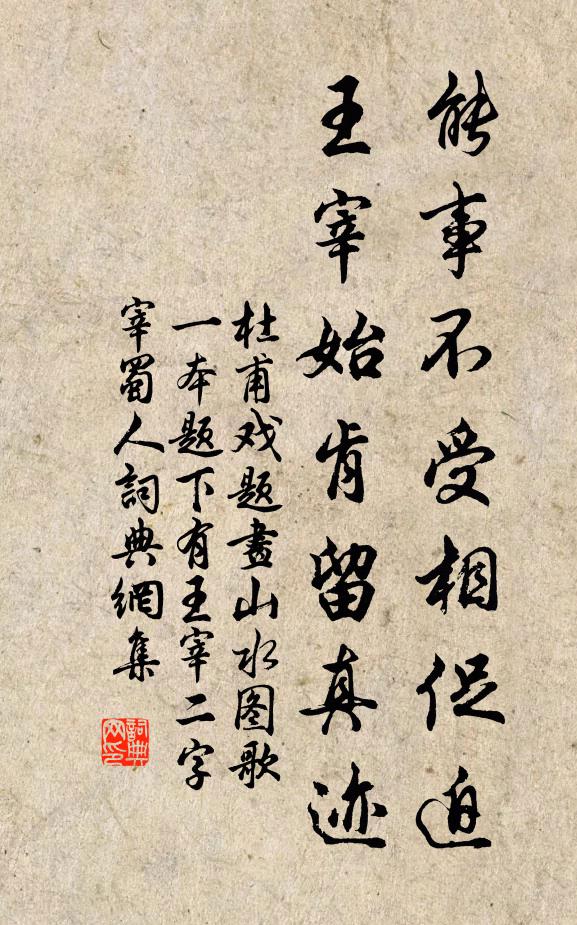 能事不受相促迫
王宰始肯留真迹
杜甫戏题畫山水图歌
一本题下有王宰二字
宰蜀人詞典網集
詞典网印